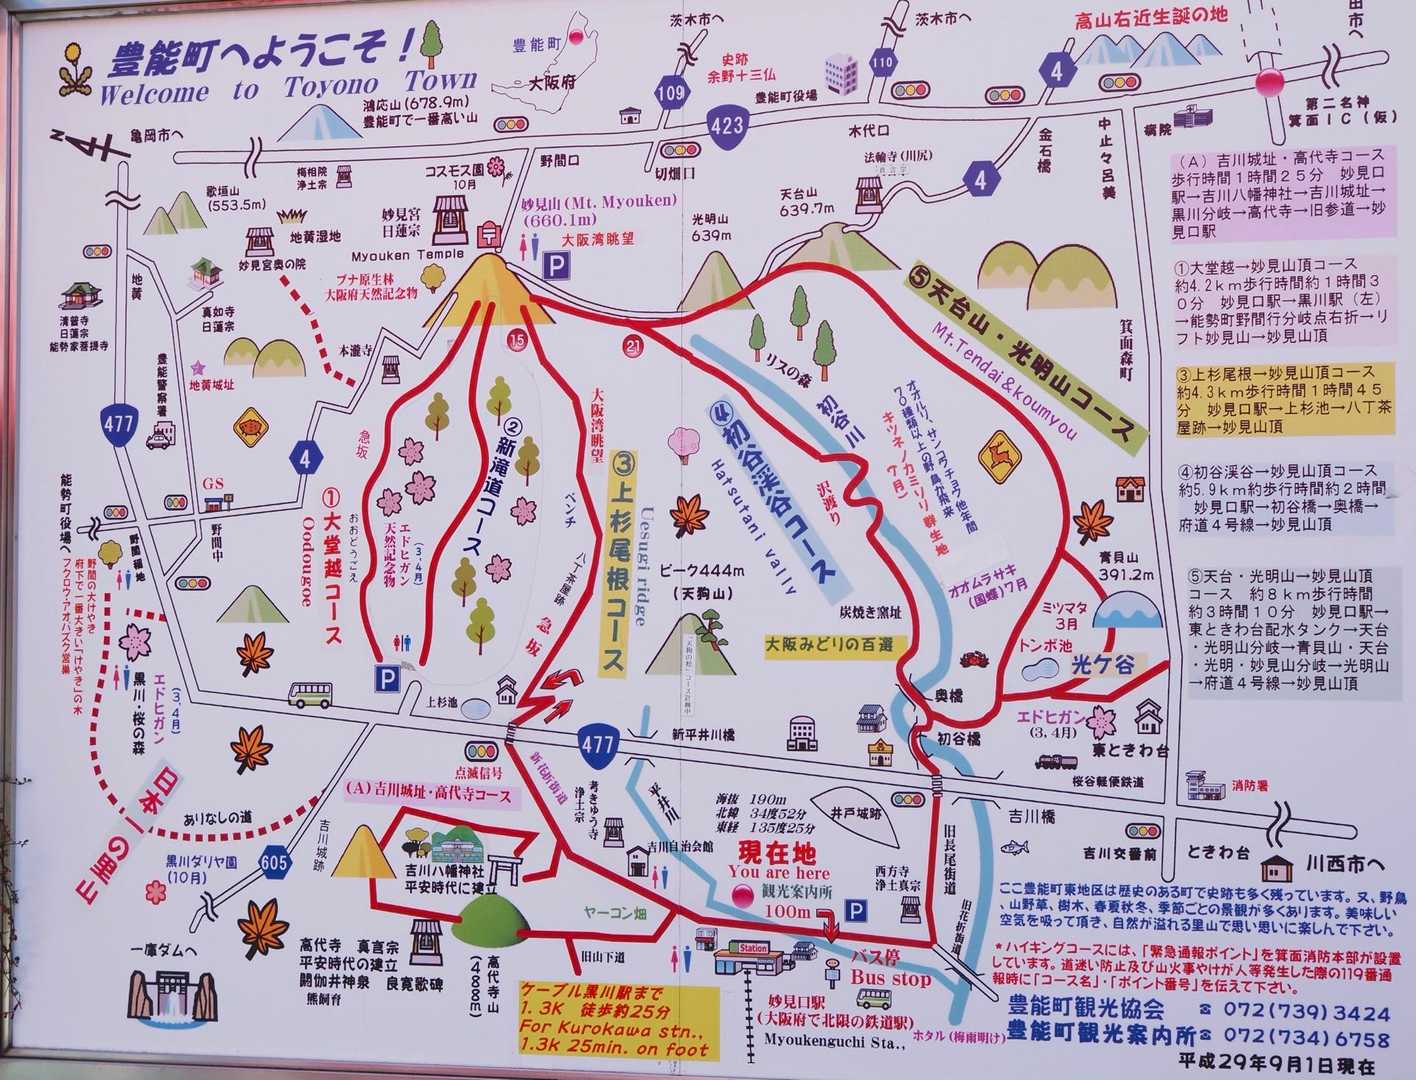 豊能町へようこそ!
Welcome to Toyono Town
豊能町
大阪府
茨木市へ
茨木市へ
高山右近生誕の地
史跡
余野十三仏
豊能町役場
109
110
4
423
鴻応山(678.9m)
豊能町で一番高い山
亀岡市へ
N
梅相院
浄土宗
コスモス園
10月
野間口
切畑口
木代口
金石橋
中止々呂美
病院
第二名神
箕面IC(仮)
法輪寺(川尻)
歌垣山
(553.5m)
地黄湿地
妙見宮奥の院
妙見宮
日蓮宗
Myouken Temple
妙見山(Mt. Myouken)
(660.1m)
大阪湾眺望
P
光明山
639m
天台山
639.7m
4
ブナ原生林
大阪府天然記念物
地黄
清普寺
日蓮宗
能勢家菩提寺
真如寺
日蓮宗
地黄城址
本瀧寺
豊能警察署
477
4
15
21
リスの森
初谷川
箕面森町
⑤天台山・光明山コース
Mt.Tendai&koumyou
オオルリ、サンコウチョウ他年間
70種類以上の野鳥が飛来
キツネノカミソリ群生地
(7月)
④初谷渓谷コース
Hatsutani Vally
沢渡り
大阪湾眺望
③上杉尾根コース
Uesugi ridge
ベンチ
八丁茶屋跡
急坂
②新滝道コース
急坂
①大堂越コース
おおどうごえ
Oodougoe
エドヒガン
(3,4月)
天然記念物
能勢町役場へ
GS
野間中
野間稲地
野間の大けやき
府下で一番大きい「けやき」の木
フクロウ・アオバズク営巣
エドヒガン
(3,4月)
黒川・桜の森
ピーク444m
(天狗山)
炭焼き窯址
大阪みどりの百選
オオムラサキ
(国蝶)7月
青貝山
391.2m
ミツマタ
3月
トンボ池
光ケ谷
エドヒガン
(3,4月)
東ときわ台
奥橋
初谷橋
P
上杉池
477
新平井川橋
平井川
点滅信号
新花折街道
(A)吉川城址・高代寺コース
考きゅう寺
浄土宗
吉川自治会館
海抜 190m
北緯 34度52分
東経 135度25分
井戸城跡
桜谷軽便鉄道
消防署
吉川橋
吉川交番前
ときわ台
川西市へ
日本一の里山
ありなしの道
吉川城跡
黒川ダリヤ園
(10月)
605
吉川八幡神社
平安時代に建立
現在地
You are here
観光案内所
100m
P
西方寺
浄土真宗
旧長尾街道
旧花折街道
ヤーコン畑
旧山下道
Station
バス停
Bus stop
一庫ダムへ
高代寺 真言宗
平安時代の建立
閼伽井神泉 良寛歌碑
熊飼育
高代寺山
(488m)
ケーブル黒川駅まで
1.3K 徒歩約25分
For Kurokawa stn.,
1.3K 25min. on foot
妙見口駅
(大阪府で北限の鉄道駅)
Myoukenguchi Sta.,
ホタル(梅雨明け)
(A)吉川城址・高代寺コース
歩行時間1時間25分 妙見口
駅→吉川八幡神社→吉川城址→
黒川分岐→高代寺→旧参道→妙
見口駅
①大堂越→妙見山頂コース
約4.2km歩行時間約1時間3
0分 妙見口駅→黒川駅(左)
→能勢町野間行分岐点右折→リ
フト妙見山→妙見山頂
③上杉尾根→妙見山頂コース
約4.3km歩行時間1時間45
分 妙見口駅→上杉池→八丁茶
屋跡→妙見山頂
④初谷渓谷→妙見山頂コース
約5.9km約歩行時間約2時間
妙見口駅→初谷橋→奥橋→
府道4号線→妙見山頂
⑤天台・光明山→妙見山頂
コース 約8km歩行時間
約3時間10分 妙見口駅→
東ときわ台配水タンク→天台
・光明山分岐→青貝山・天台
・光明・妙見山分岐→光明山
→府道4号線→妙見山頂
ここ豊能町東地区は歴史のある町で史跡も多く残っています。又、野鳥
、山野草、樹木、春夏秋冬、季節ごとの景観が多くあります。美味しい
空気を吸って頂き、自然が溢れる里山で思い思いに楽しんで下さい。
*ハイキングコースには、「緊急通報ポイント」を箕面消防本部が設置
しています。道迷い防止及び山火事やけが人等発生した際の119番通
報時に「コース名」・「ポイント番号」を伝えて下さい。
豊能町観光協会 ☎ 072(739)3424
豊能町観光案内所☎ 072(734)6758
平成29年9月1日現在